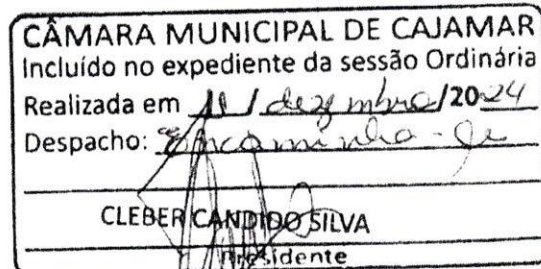 CÂMARA MUNICIPAL DE CAJAMAR
Incluído no expediente da sessão Ordinária
Realizada em 11 / dezembro/2024
Despacho: Encaminha-se
CLEBER CANDIDO SILVA
Presidente